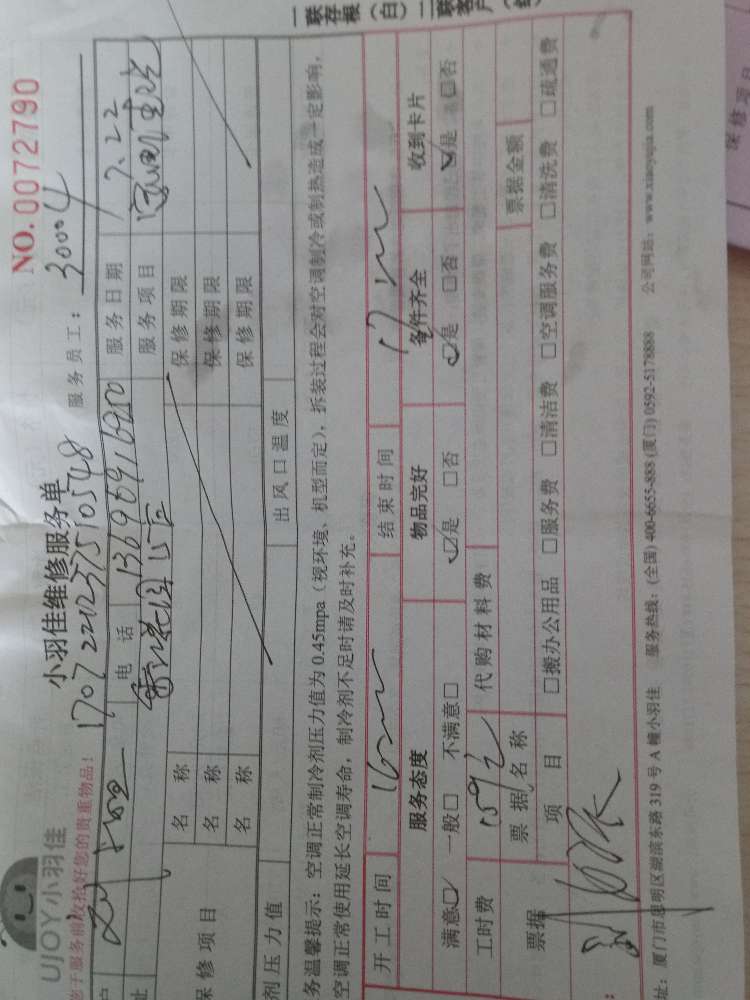 一联存根（白）二联客户（
UJOY小羽佳
小羽佳维修服务单
NO.0072790
您于服务前收拾好您的贵重物品！
服务员工：30004
户
电话 13690916950
服务日期 7.22
址
服务项目
保修项目
名称
保修期限
名称
保修期限
名称
保修期限
剂压力值
出风口温度
务温馨提示：空调正常制冷剂压力值为 0.45mpa（视环境、机型而定），拆装过程会对空调制冷或制热造成一定影响，
空调正常使用延长空调寿命，制冷剂不足时请及时补充。
开工时间
结束时间
服务态度
物品完好
备件齐全
收到卡片
满意□ 一般□ 不满意□
□是 □否
□是 □否
□是 □否
工时费
代购材料费
票据
票据名称
票据金额
项目
□搬办公用品 □服务费 □清洁费 □空调服务费 □清洗费 □疏通费
址：厦门市思明区湖滨东路 319 号 A 幢小羽佳 服务热线：(全国) 400-6655-888 (厦门) 0592-5178888 公司网站：www.xiaoyujia.com
保修项目